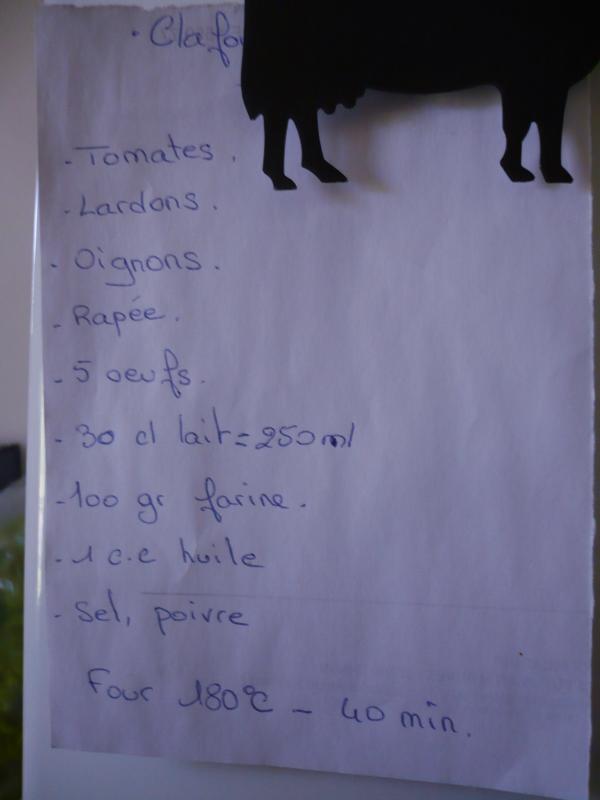 · Clafou
- Tomates.
- Lardons.
- Oignons.
- Rapée.
- 5 oeufs.
- 30 cl lait = 250 ml
- 100 gr farine.
- 1 c.c huile
- Sel, poivre
Four 180°C - 40 min.